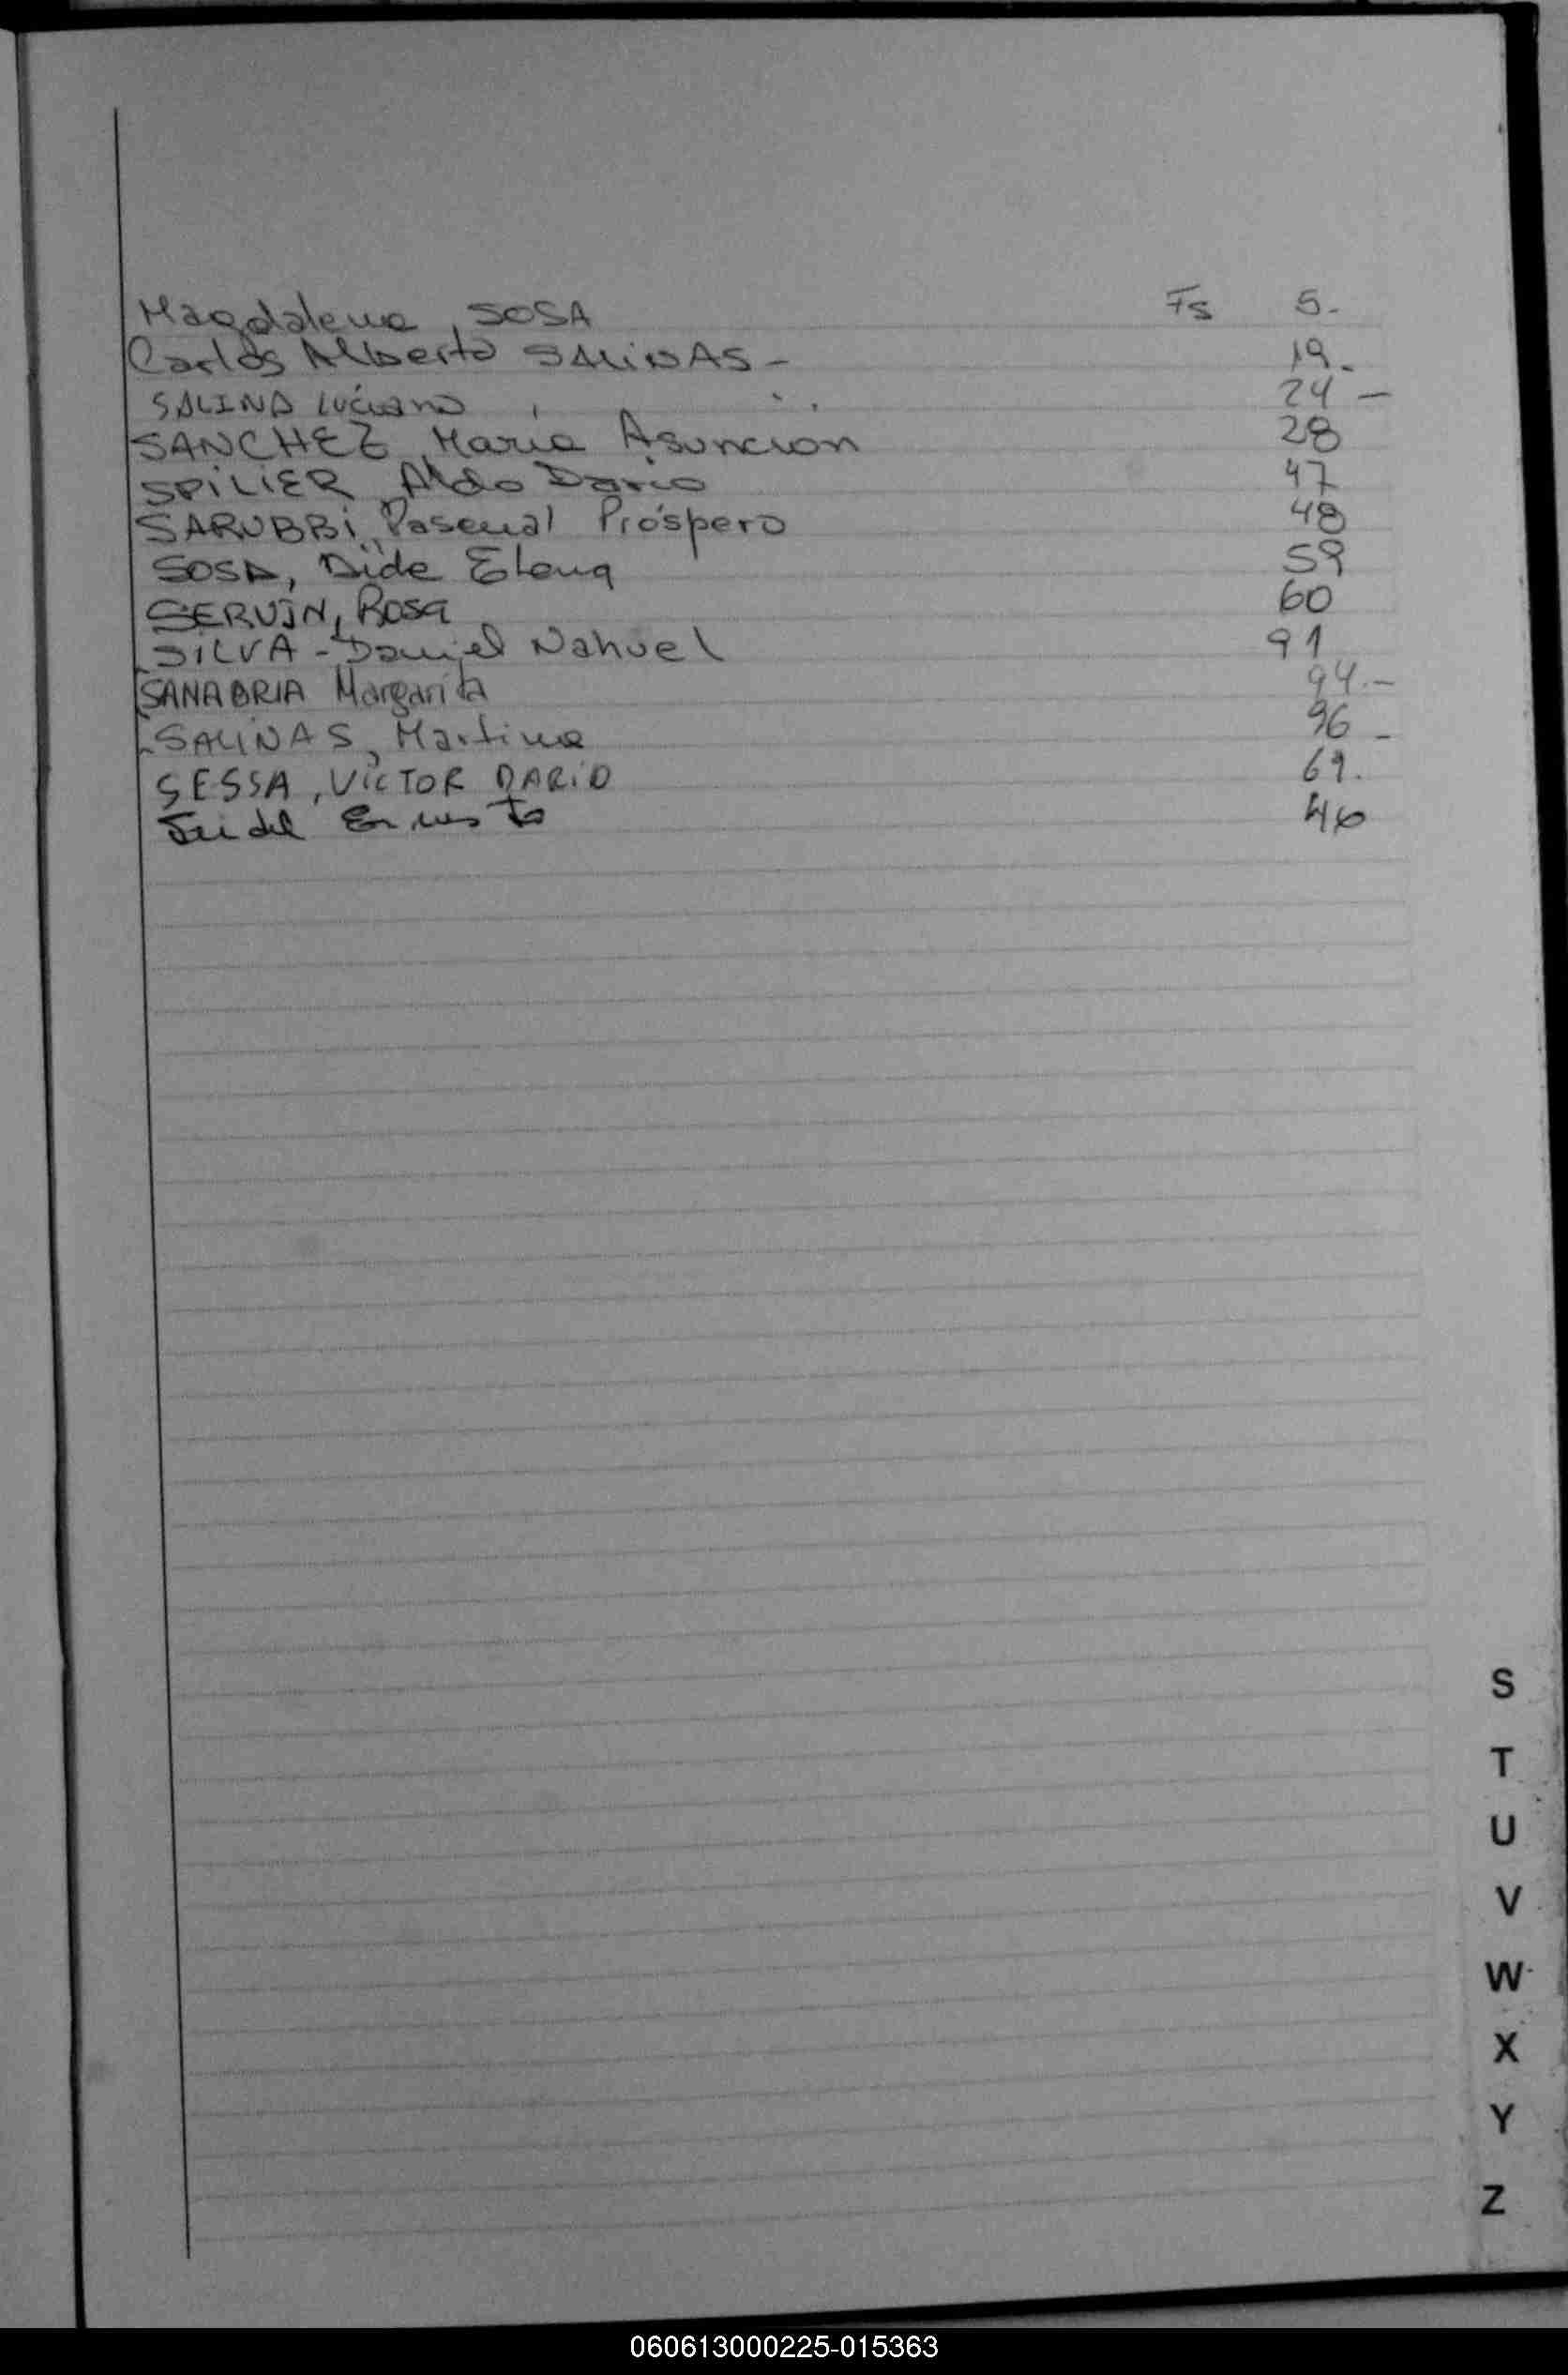 Magdalena, SOSA Fs 5.-
Carlos Alberto SALINAS - 19.-
SALINA Luciano 24 -
SANCHEZ, Maria Asuncion 28
SPILIER Aldo Dario 47
SARUBBI, Pascual Próspero 48
SOSA, Dide Elena 59
SERVIN, Rosa 60
SILVA - Daniel Nahuel 91
SANABRIA Margarita 94.-
SALINAS, Martina 96 -
SESSA, VICTOR DARIO 69.
Seidel Ernesto 46
S
T
U
V
W
X
Y
Z
060613000225-015363